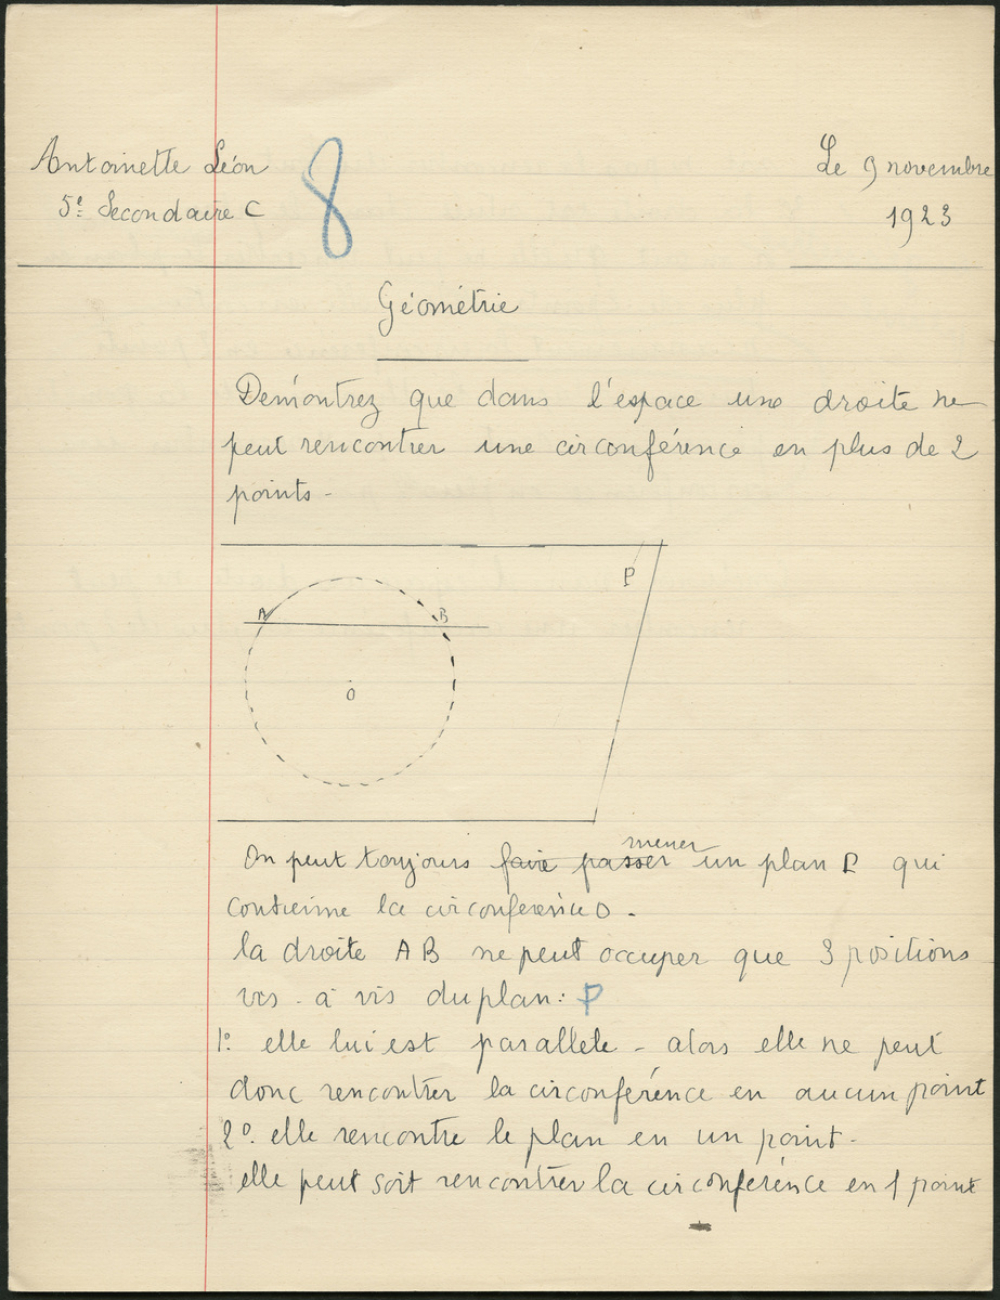 Antoinette Léon
5e Secondaire C
8
Le 9 novembre
1923
Géométrie
Démontrez que dans l'espace une droite ne
peut rencontrer une circonférence en plus de 2
points -
P
A
B
O
On peut toujours faire passer mener un plan P qui
contienne la circonférence O.
la droite AB ne peut occuper que 3 positions
vis-à vis du plan: P
1º elle lui est parallèle - alors elle ne peut
donc rencontrer la circonférence en aucun point
2º. elle rencontre le plan en un point.
elle peut soit rencontrer la circonférence en 1 point